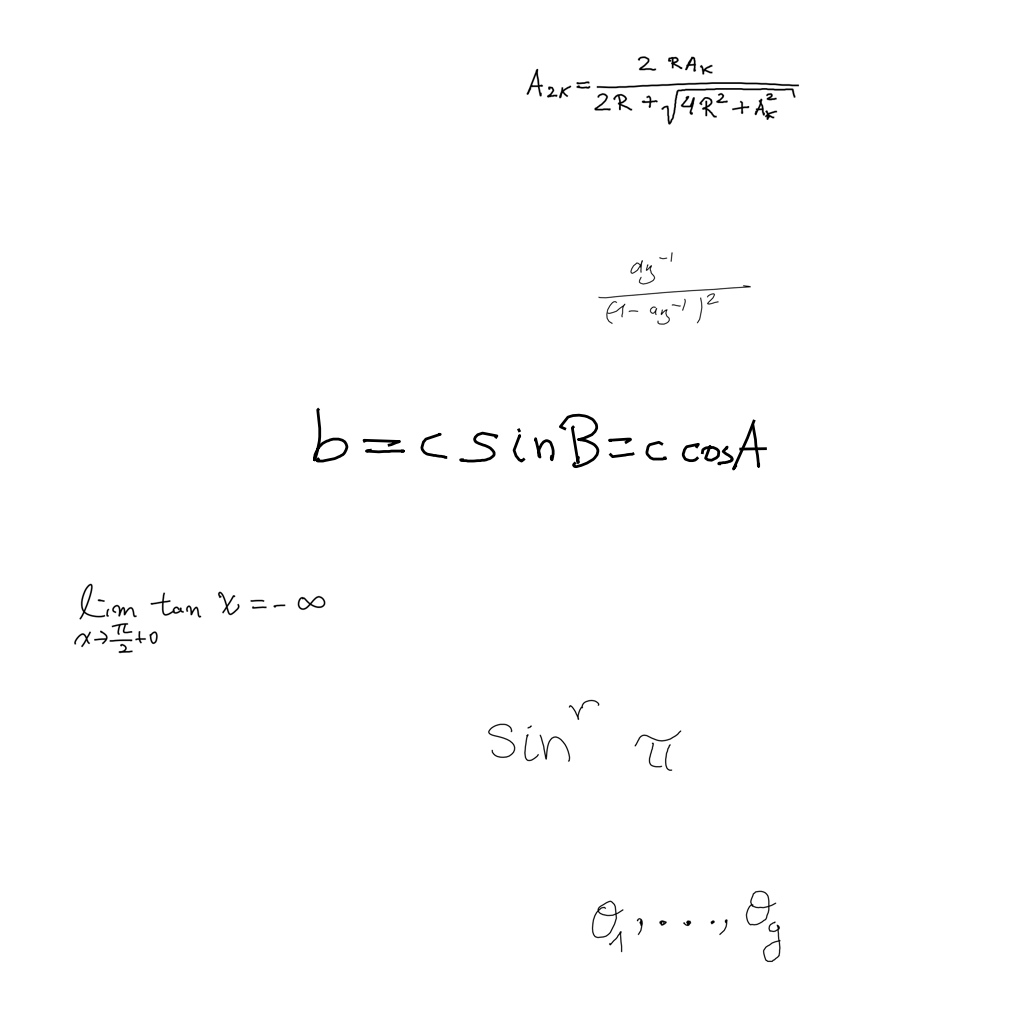 A_{2K} = \frac{2 R A_K}{2R + \sqrt{4R^2 + A_K^2}}
\frac{az^{-1}}{(1 - az^{-1})^2}
b = c sin B = c cos A
\lim_{x \to \frac{\pi}{2} + 0} tan x = -∞
sin^r π
θ_1, ..., θ_g